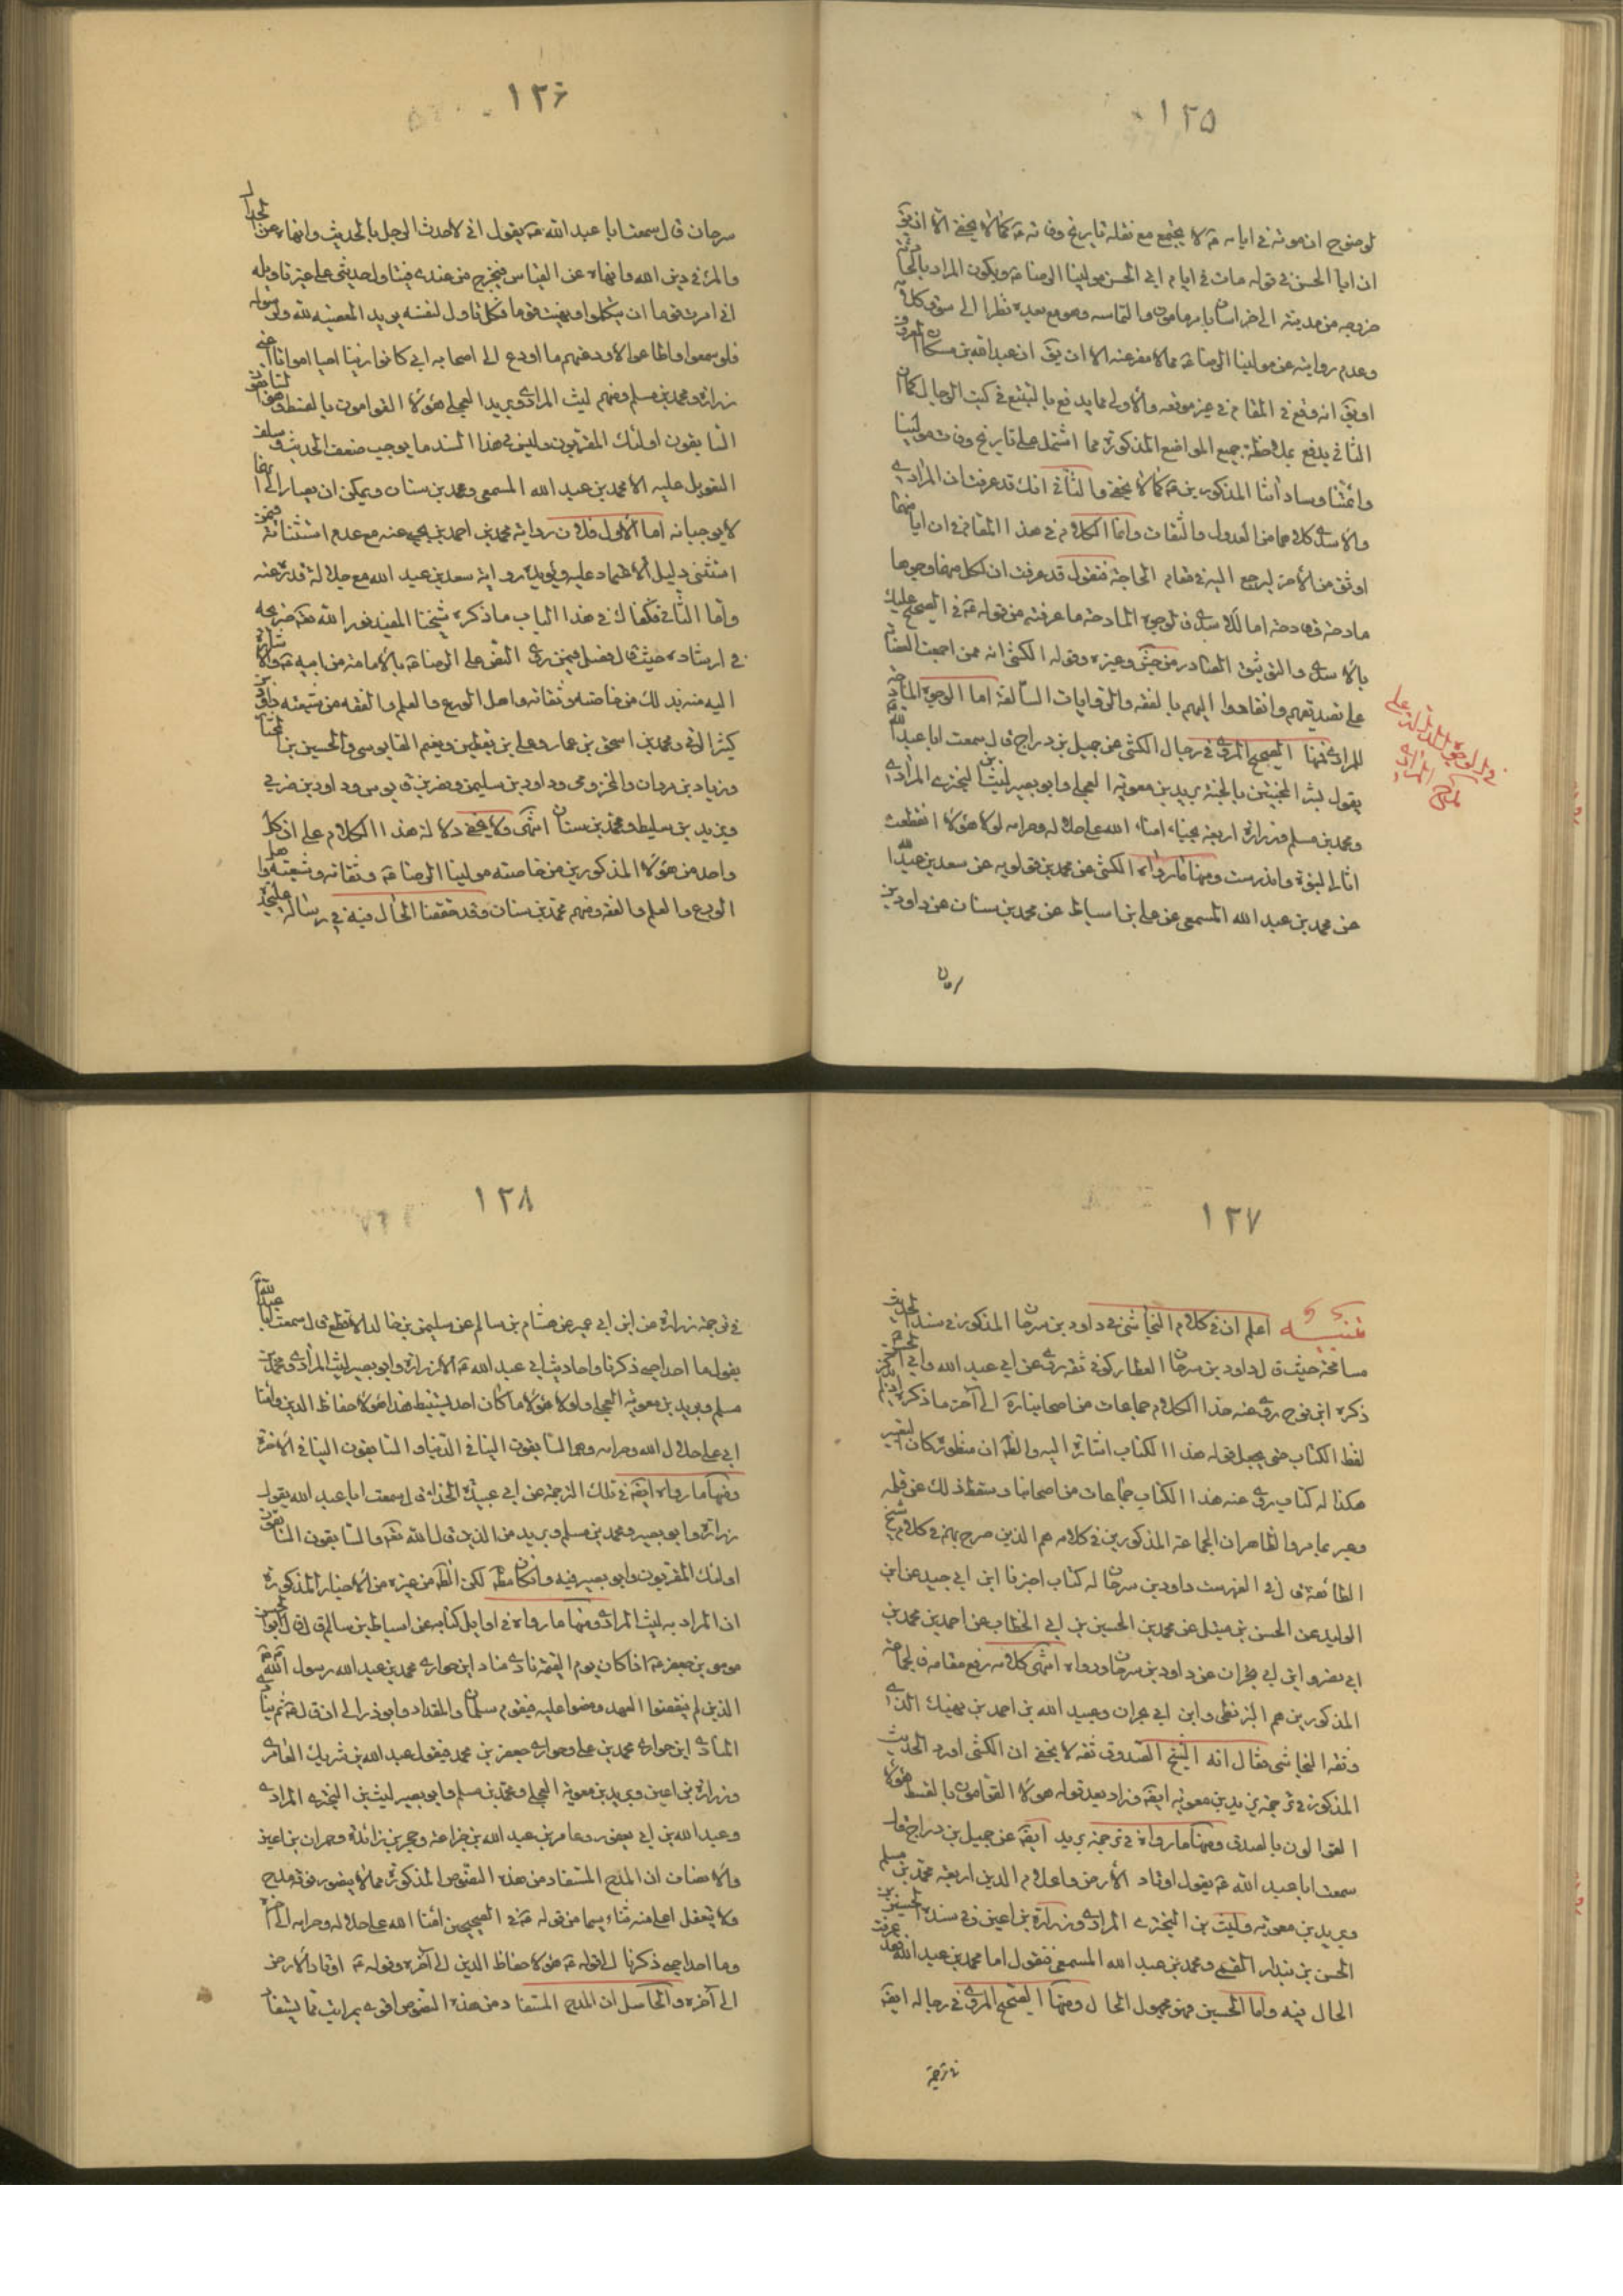 ١٢٥
لوضوح ان موته في ايامه ع لا يجتمع مع نقله تاريخ وفاته ع كما لا يخفى الا ان يق
ان ابا الحسن في قوله مات في ايام ابي الحسن مولينا الرضا ع ويكون المراد بالحادثة
خروجه من مدينة الى خراسان بامر مامون والتماسه وهو مع بعده نظرا الى سوق كلامه
وعدم روايته عن مولينا الرضا ع مما لا مفر عنه الا ان يق ان عبد الله بن مسكان
او يق انه وقع في المقام في غير موقعه والاولى مما يدفع بالتتبع في كتب الرجال كما ان
الثاني يدفع بملاحظة جميع المواضع المذكورة مما اشتمل على تاريخ وفات مولينا
وائمتنا وساداتنا المذكورين ع كما لا يخفى والثاني انك قد عرفت ان المرادي
والاسدي كلاهما من العدول والثقات وانما الكلام في هذا المقام في ان ايا منهما
اوثق من الآخر ليرجع اليه في مقام الحاجة فنقول قد عرفت ان لكل منهما وجوها
مادحة وقادحة اما للاسدي فالوجوه المادحة ما عرفته من قوله ع في الصحيح عليك
بالاسدي والتوثيق الصادر من جش وغيره وقوله الكشي انه ممن اجمعت العصابة
على تصديقهم وانقادوا اليهم بالفقه والروايات السالفة اما الوجوه المادحة
للمرادي فمنها الصحيح المروي في رجال الكشي عن جميل بن دراج قال سمعت ابا عبد الله ع
يقول بشر المخبتين بالجنة بريد بن معوية العجلي وابو بصير ليث بن البختري المرادي
ومحمد بن مسلم وزرارة اربعة نجباء امناء الله على حلاله وحرامه لولا هؤلاء انقطعت
اثار النبوة واندرست ومنها ما رواه الكشي عن محمد بن قولويه عن سعد بن عبد الله
عن محمد بن عبد الله المسمعي عن علي بن اسباط عن محمد بن سنان عن داود بن
سرحان
في الوجوه الدالة على
مدح المرادي
١٢۶
سرحان قال سمعت ابا عبد الله ع يقول اني لاحدث الرجل بالحديث وانهاه عن الجدال
والمراء في دين الله وانهاه عن القياس فيخرج من عندي فيتاول حديثي على غير تاويله
اني امرت قوما ان يتكلموا ونهيت قوما فكل تاول لنفسه يريد المعصية لله ولرسوله
فلو سمعوا واطاعوا لاودعتهم ما اودع ابي اصحابه ان اصحاب ابي كانوا زينا احيا وامواتا اعني
زرارة ومحمد بن مسلم ومنهم ليث المرادي وبريد العجلي هؤلاء القوامون بالقسط وهؤلاء السابقون
السابقون اولئك المقربون وليس في هذا السند ما يوجب ضعف الحديث وسلب
التعويل عليه الا محمد بن عبد الله المسمعي ومحمد بن سنان ويمكن ان يصار الى انهما
لا يوجبانه اما الاول فلان رواية محمد بن احمد بن يحيى عنه مع عدم استثنائه فيمن
استثنى دليل الاعتماد عليه ويؤيده رواية سعد بن عبد الله مع جلالة قدره عنه
واما الثاني فكفاك في هذا الباب ما ذكره شيخنا المفيد نور الله تع ضريحه
في ارشاده حيث قال فصل فيمن روى النص على الرضا ع بالامامة من ابيه ع والاشارة
اليه منه بذلك من خاصته وثقاته واهل الورع والعلم والفقه من شيعته داود بن
كثير الرقي ومحمد بن اسحق بن عمار وعلي بن يقطين ونعيم القابوسي والحسين بن المختار
وزياد بن مروان والمخزومي وداود بن سليمن ونصر بن قابوس وداود بن زربي
ويزيد بن سليط ومحمد بن سنان انتهى ولا يخفى دلالة هذا الكلام على ان كل
واحد من هؤلاء المذكورين من خاصته مولينا الرضا ع وثقاته وشيعته واهل
الورع والعلم والفقه ومنهم محمد بن سنان وقد حققنا الحال فيه في رسالة عليحدة
١٢٧
تنبيه اعلم ان في كلام النجاشي في داود بن سرحان المذكور في سند الحديث
مسامحة حيث قال داود بن سرحان العطار كوفي ثقة روى عن ابي عبد الله وابي الحسن ع
ذكره ابن نوح روى عنه هذا الكلام جماعات من اصحابنا ره الى آخر ما ذكره اذ لم يذكر
لفظ الكتاب حتى يجعل قوله هذا الكتاب اشارة اليه والظ ان منظوره كان التعبير
هكذا له كتاب روى عنه هذا الكتاب جماعات من اصحابنا وسقط ذلك عن قلمه
وعبر بما مر والظاهر ان الجماعة المذكورين في كلامه هم الذين صرح بهم في كلام شيخ
الطائفة قال في الفهرست داود بن سرحان له كتاب اخبرنا ابن ابي جيد عن ابن
الوليد عن الحسن بن متيل عن محمد بن الحسين بن ابي الخطاب عن احمد بن محمد بن
ابي نصر وابن ابي نجران عن داود بن سرحان ورواه انتهى كلامه رفع مقامه فالجماعة
المذكورين هم البزنطي وابن ابي نجران وعبيد الله بن احمد بن نهيك الذي
وثقه النجاشي فقال انه الشيخ الصدوق ثقة لا يخفى ان الكشي اورد الحديث
المذكور في ترجمة بريد بن معوية ايضا وزاد بعد قوله هؤلاء القوامون بالقسط هؤلاء
القوالون بالصدق ومنها ما رواه في ترجمة بريد ايضا عن جميل بن دراج قال
سمعت ابا عبد الله ع يقول اوتاد الارض واعلام الدين اربعة محمد بن مسلم
وبريد بن معوية وليث بن البختري المرادي وزرارة بن اعين وفي سنده الحسين بن
الحسن بن بندار القمي ومحمد بن عبد الله المسمعي فنقول اما محمد بن عبد الله فقد عرفت
الحال فيه واما الحسين فهو مجهول الحال ومنها الصحيح المروي في رجاله ايضا
في ترجمة
١٢٨
في ترجمة زرارة عن ابن ابي عمير عن هشام بن سالم عن سليمن بن خالد الاقطع قال سمعت ابا عبد الله ع
يقول ما احد احيى ذكرنا واحاديث ابي عبد الله ع الا زرارة وابو بصير ليث المرادي ومحمد بن
مسلم وبريد بن معوية العجلي ولولا هؤلاء ما كان احد يستنبط هذا هؤلاء حفاظ الدين وامناء
ابي على حلال الله وحرامه وهم السابقون الينا في الدنيا والسابقون الينا في الآخرة
ومنها ما رواه ايضا في تلك الترجمة عن ابي عبيدة الحذاء قال سمعت ابا عبد الله يقول
زرارة وابو بصير ومحمد بن مسلم وبريد من الذين قال الله تع والسابقون السابقون
اولئك المقربون وابو بصير فيه وان كان مطلقا لكن الظ من غيره من الاخبار المذكورة
ان المراد به ليث المرادي ومنها ما رواه في اوايل كتابه عن اسباط بن سالم قال قال ابو الحسن
موسى بن جعفر ع اذا كان يوم القيمة نادى مناد اين حواري محمد بن عبد الله رسول الله ص
الذين لم ينقضوا العهد ومضوا عليه فيقوم سلمان والمقداد وابو ذر الى ان قال ع ثم ينادي
المنادي اين حواري محمد بن علي وحواري جعفر بن محمد فيقوم عبد الله بن شريك العامري
وزرارة بن اعين وبريد بن معوية العجلي ومحمد بن مسلم وابو بصير ليث بن البختري المرادي
وعبد الله بن ابي يعفور وعامر بن عبد الله بن جذاعة وحجر بن زائدة وحمران بن اعين
والانصاف ان المدح المستفاد من هذه النصوص المذكورة مما لا يتصور فوقه مدح
ولا يتعقل اعلى منه ثناء سيما من قوله ع في الصحيحين امناء الله على حلاله وحرامه الى آخره
وما احد احيى ذكرنا الى قوله ع هؤلاء حفاظ الدين الى آخره وقوله ع اوتاد الارض
الى آخره والحاصل ان المدح المستفاد من هذه النصوص اقوى بمراتب مما يستفاد